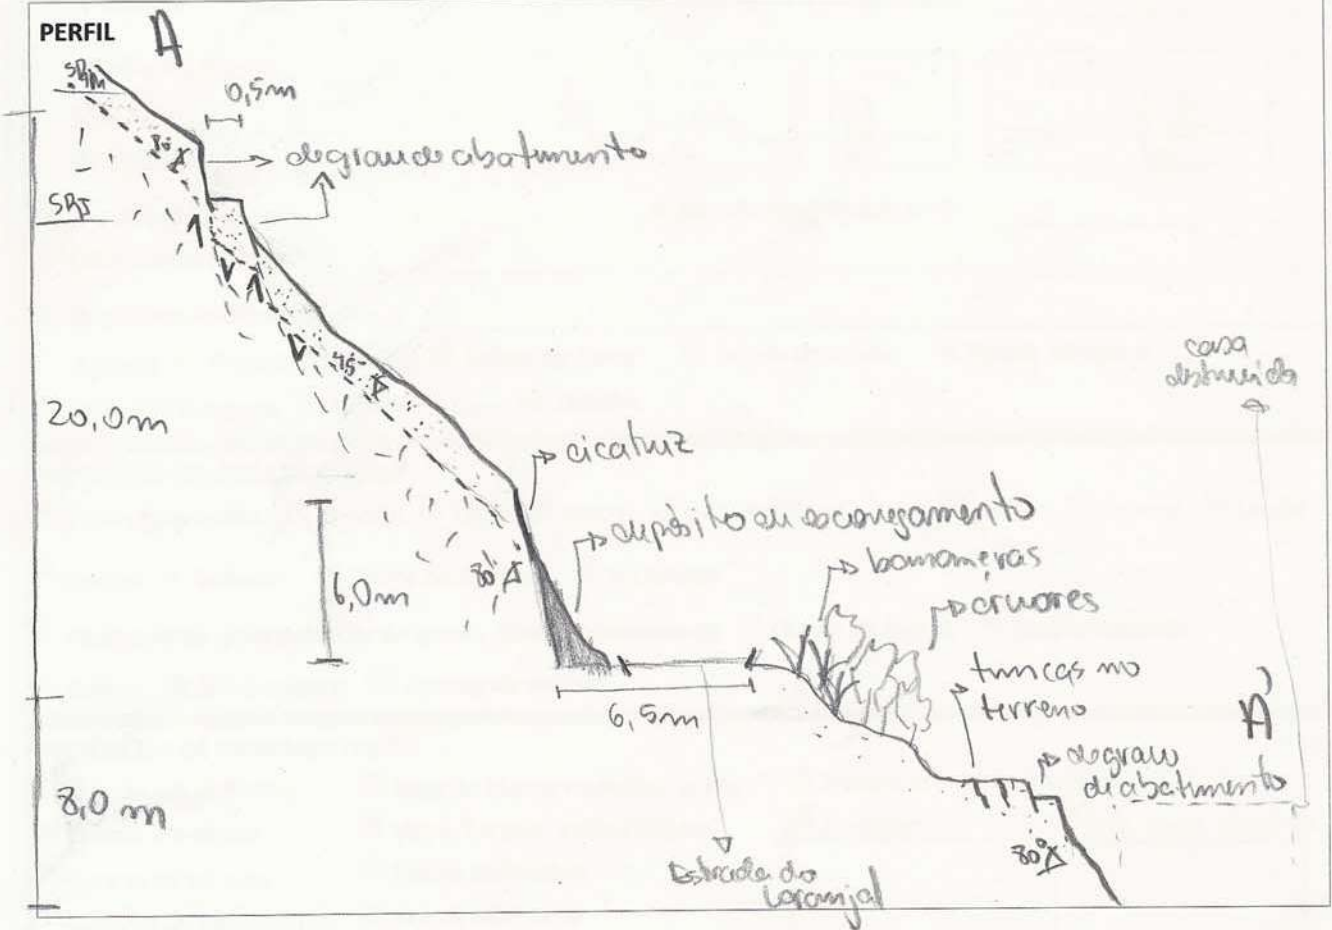 PERFIL A
SRM
0,5m
80°
degrau de abatimento
SRJ
45°
20,0m
casa
destruída
cicatriz
depósito de escorregamento
bananeiras
árvores
6,0m
80°
trincas no
terreno
6,5m
A'
degrau
de abatimento
8,0 m
80°
Estrada do
Laranjal